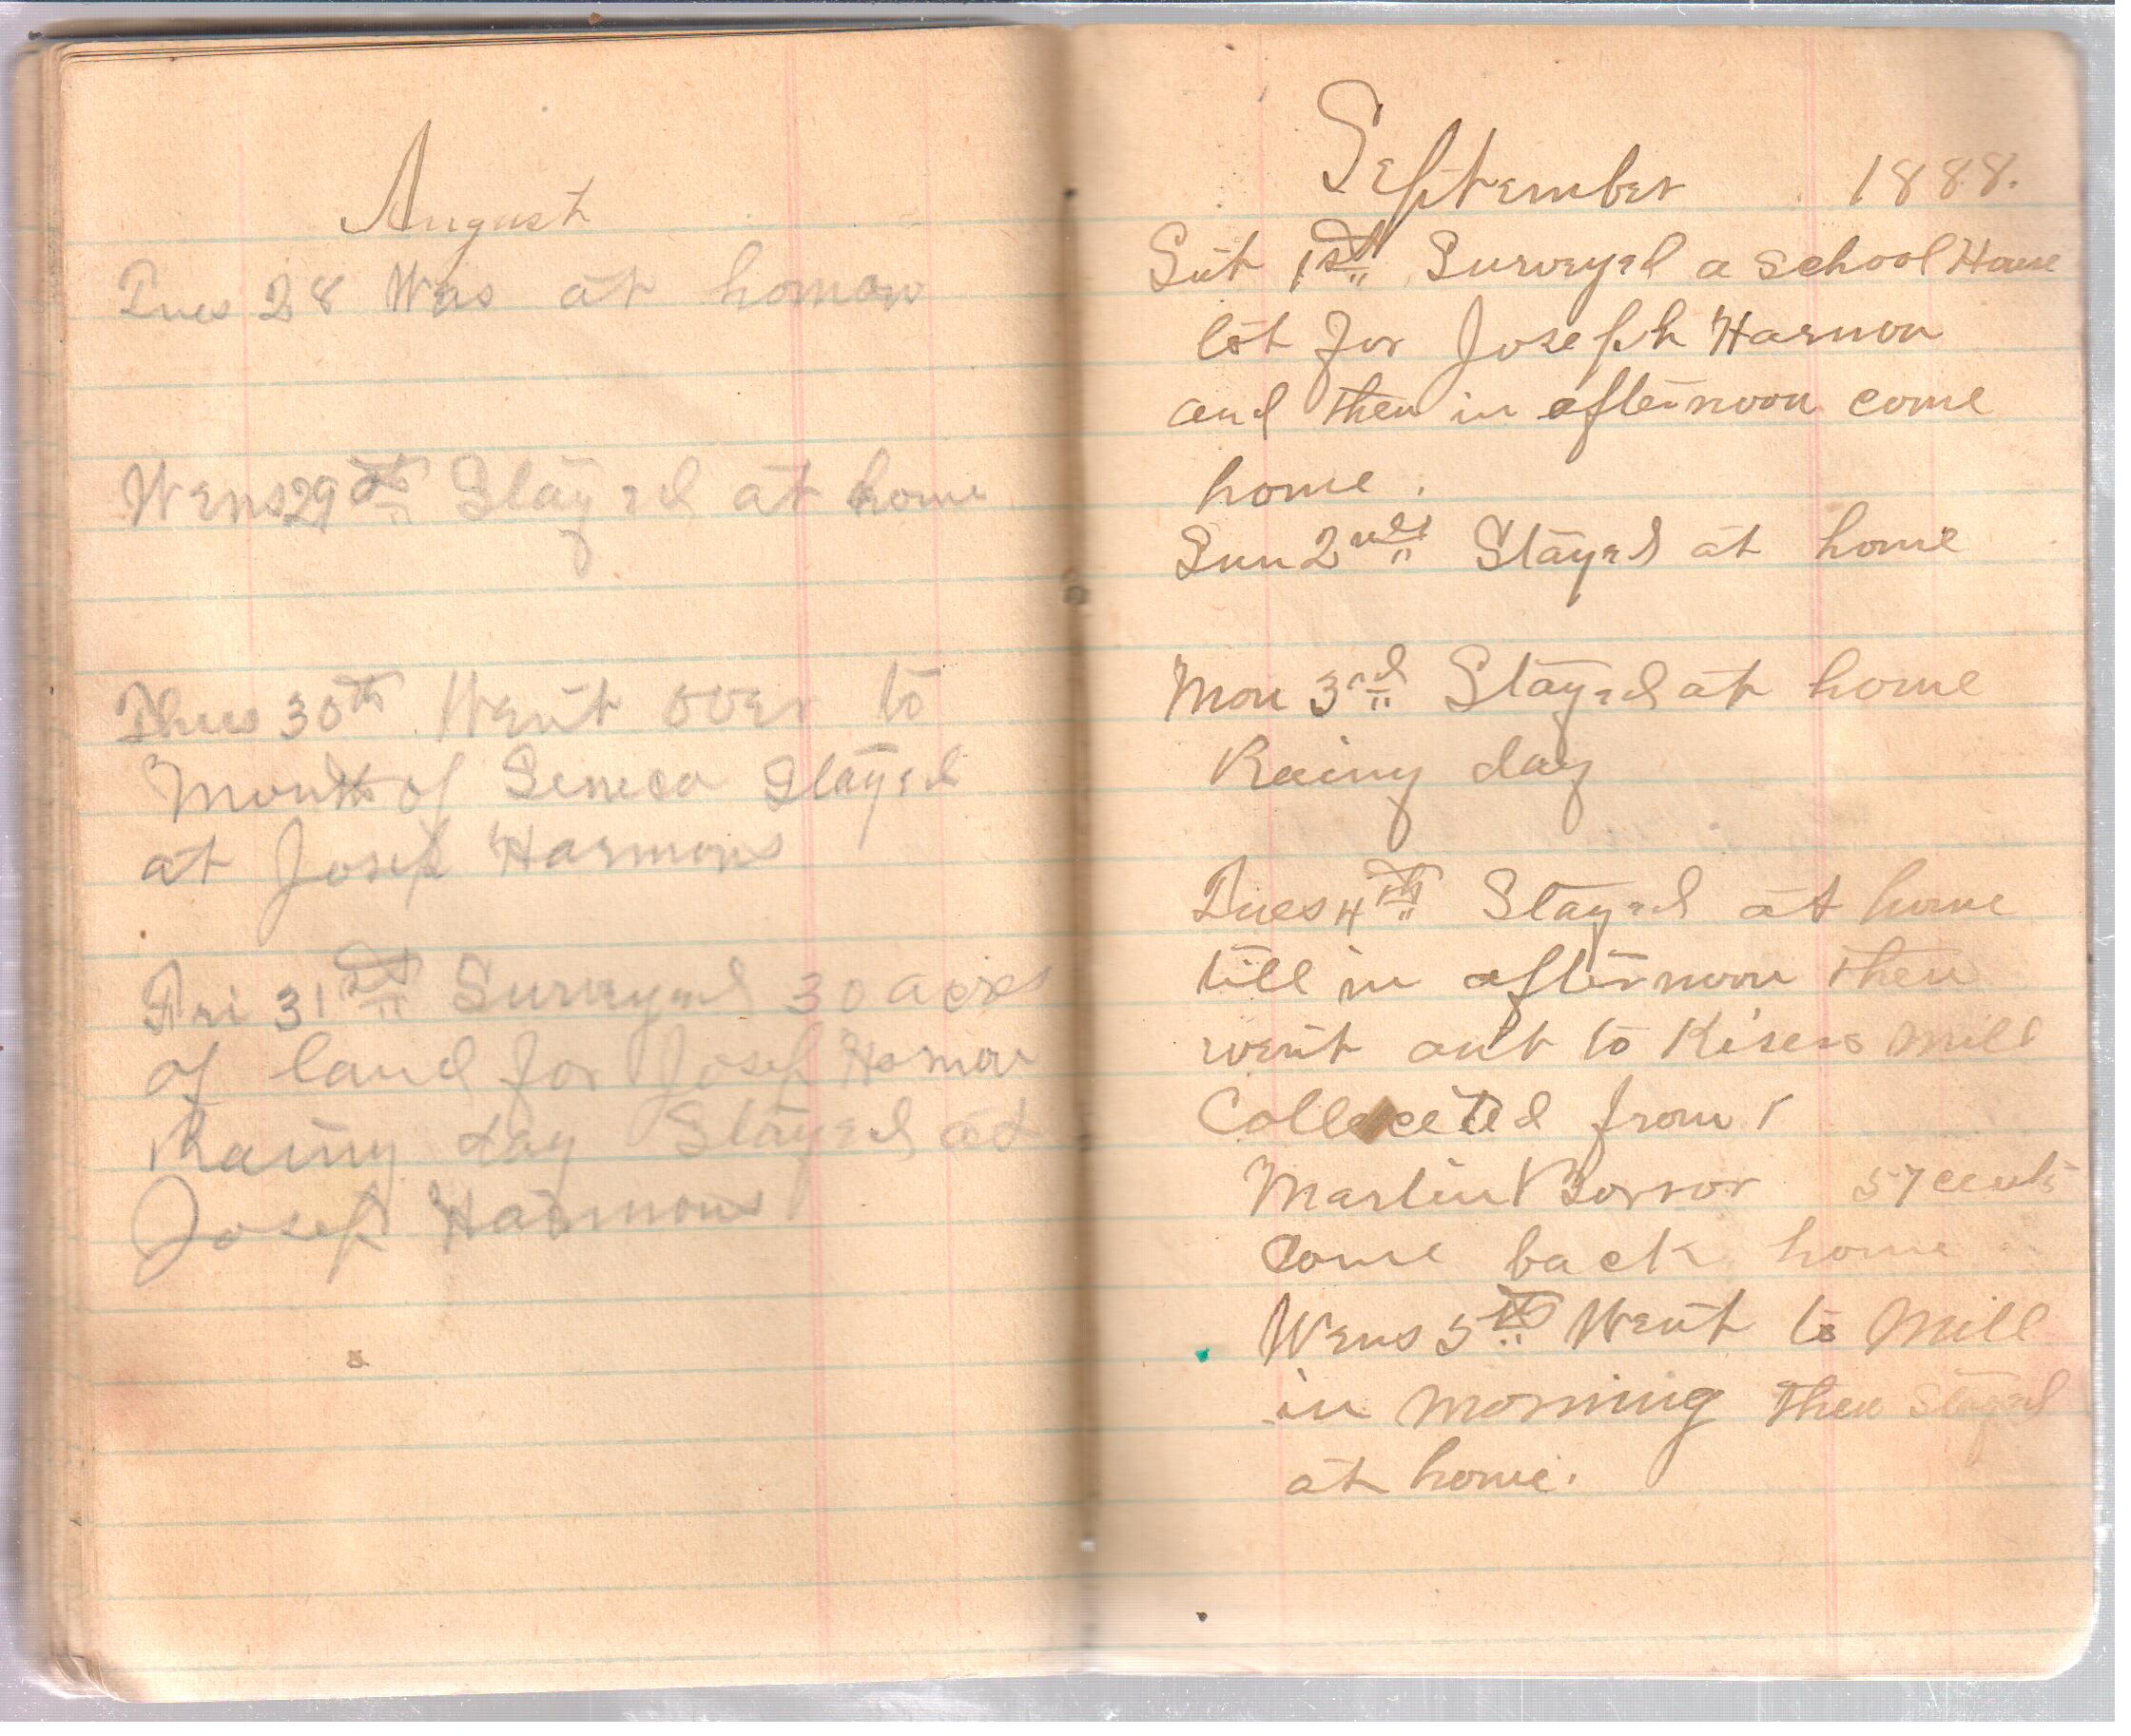 August
Tues 28 Was at home
Wens 29th Stayed at home
Thurs 30th Went over to
Mouth of Seneca Stayed
at Josep Harmons
Fri 31st Surveyed 30 acres
of land for Josep Harmon
Rainy day Stayed at
Josep Harmons
September 1888.
Sat 1st Surveyed a school House
lot for Joseph Harmon
and then in afternoon come
home.
Sun 2nd Stayed at home
Mon 3rd Stayed at home
Rainy day
Tues 4th Stayed at home
till in afternoon then
went out to Kisers Mill
Collected from
Martin Borror 57 cents
Come back home
Wens 5th Went to Mill
in morning then stayed
at home.